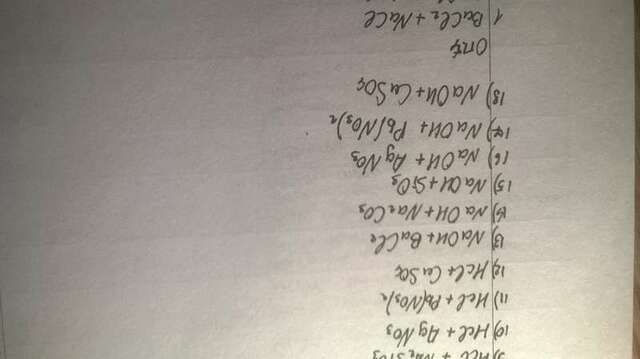 9) HCl + Na₂SiO₃
10) HCl + AgNO₃
11) HCl + Pb(NO₃)₂
12) HCl + CuSO₄
13) NaOH + BaCl₂
14) NaOH + Na₂CO₃
15) NaOH + SiO₃
16) NaOH + AgNO₃
17) NaOH + Pb(NO₃)₂
18) NaOH + CuSO₄
Оп4
1 BaCl₂ + NaCl